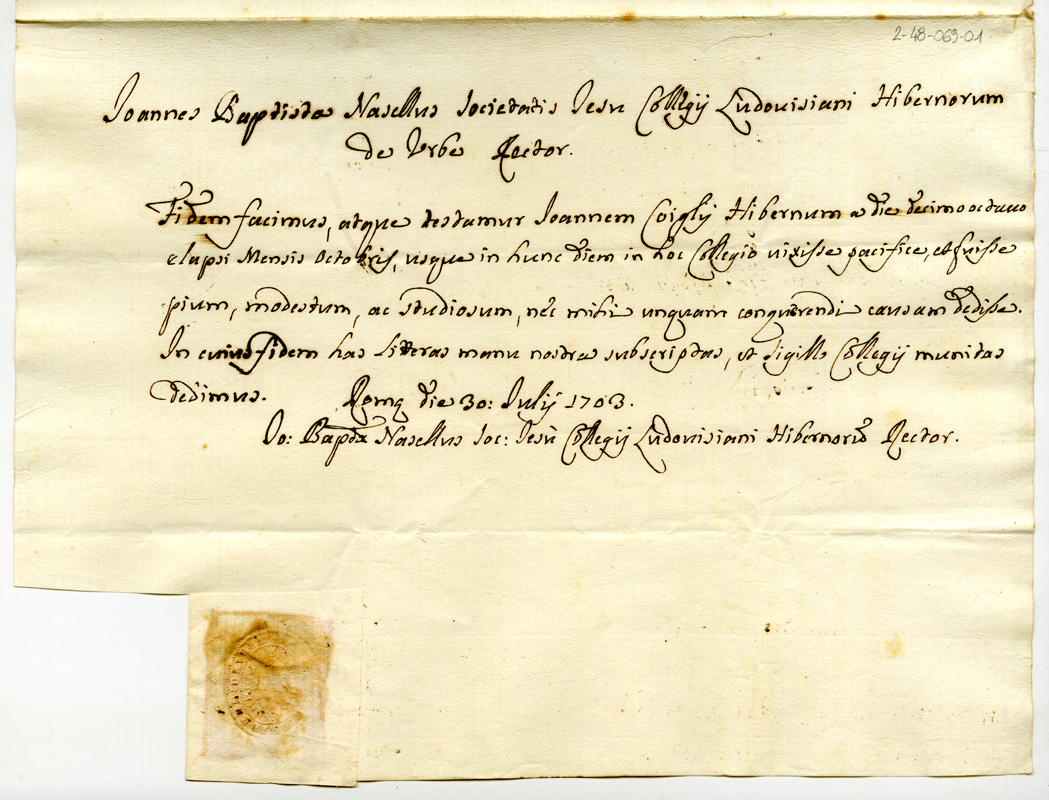 2-48-069-01
Joannes Baptista Nasellus Societatis Jesu Collegij Ludouisiani Hibernorum
de Urbe Rector.
Fidem facimus, atque testamur Joannem Coigly Hibernum a die decimo octauo
elapsi Mensis Octobris, usque in hunc diem in hoc Collegio uixisse pacifice, et fuisse
pium, modestum, ac studiosum, nec mihi unquam conquerendi causam dedisse.
In cuius fidem has litteras manu nostra subscriptas, et sigillo Collegij munitas
dedimus. Romę die 30: Julij 1703.
Jo: Bapta Nasellus Soc: Jesu Collegij Ludouisiani Hibernorũ Rector.